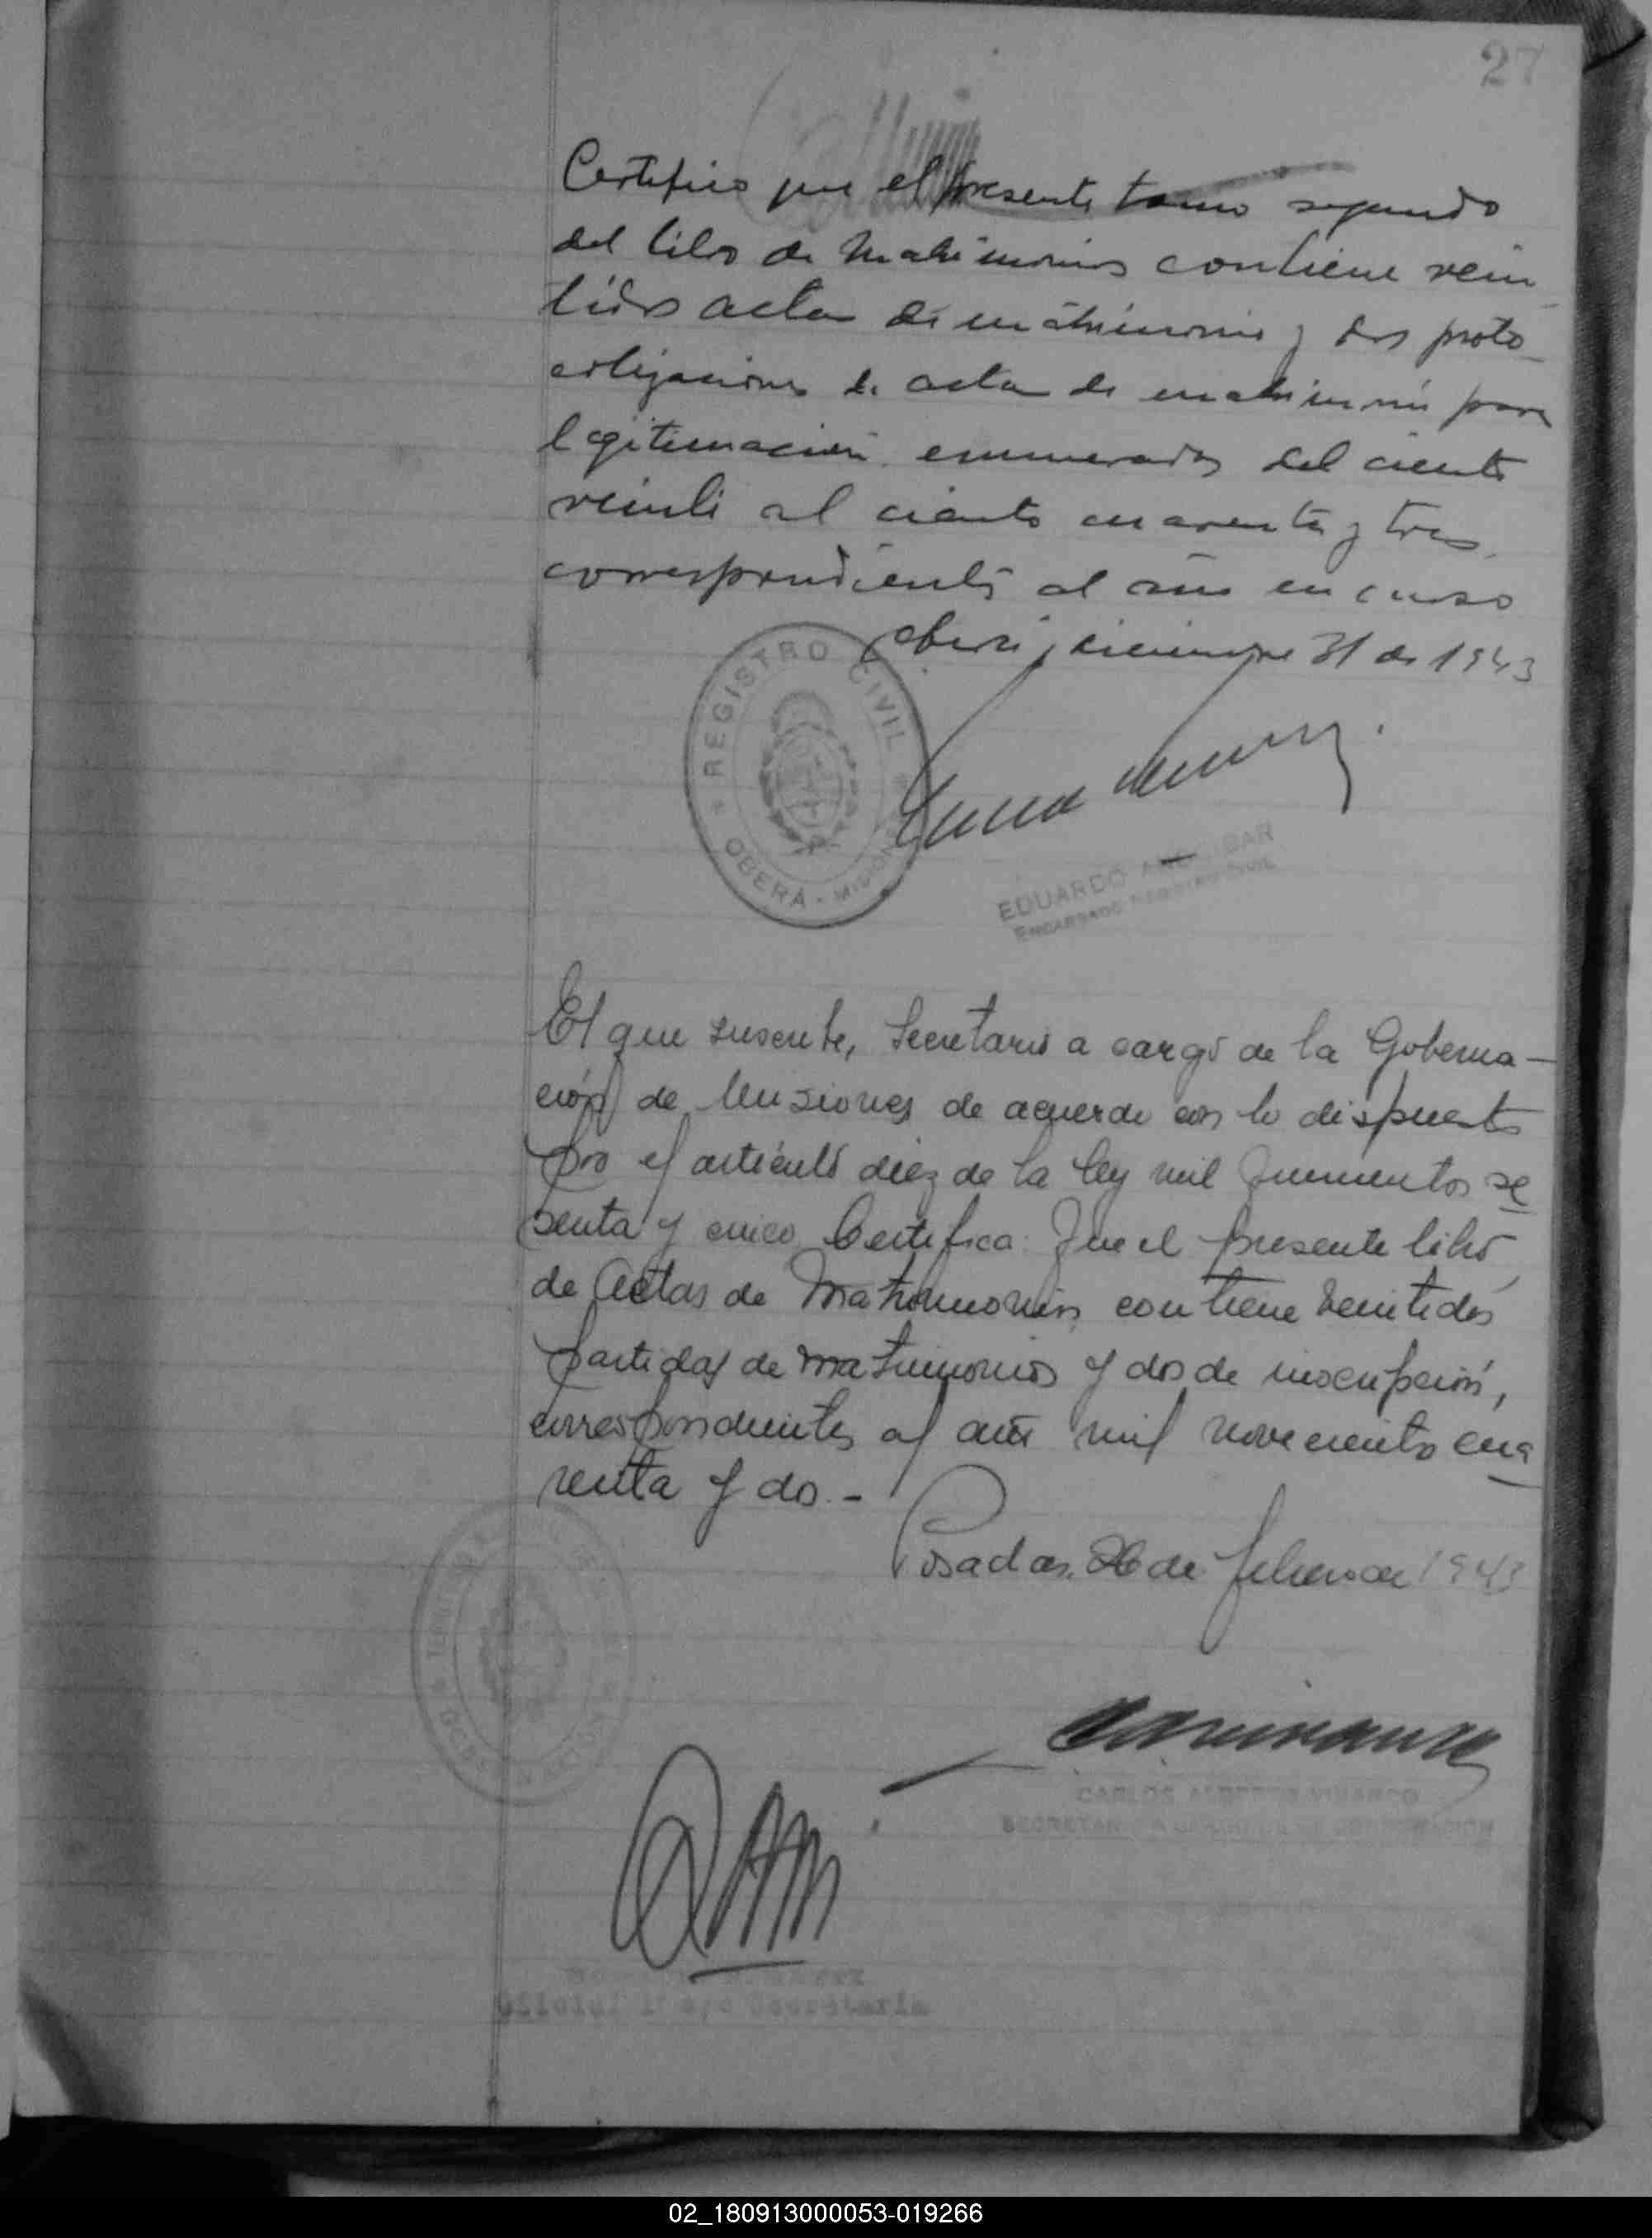 27
Certifico que el presente tomo segundo
del libro de Matrimonios contiene vein
tidós actas de matrimonio y dos proto-
colizaciones de acta de matrimonio para
legitimación enumerados del ciento
veinte al ciento cuarenta y tres,
correspondiente al año en curso
Oberá, diciembre 31 de 1943
REGISTRO CIVIL
OBERÁ - MISIONES
EDUARDO
ENCARGADO REGISTRO CIVIL
El que suscribe, Secretario a cargo de la Goberna-
ción de Misiones de acuerdo con lo dispuesto
por el artículo diez de la ley mil quinientos se
senta y cinco, Certifica: Que el presente libro
de Actas de Matrimonios, contiene veintidós
partidas de matrimonios y dos de inscripción,
correspondientes al año mil novecientos cua
renta y dos.-
Posadas, 26 de febrero de 1943
CARLOS ALBERTO
SECRETARIO A CARGO DE LA GOBERNACIÓN
Oficial 1º a/c Secretaría
02_180913000053-019266